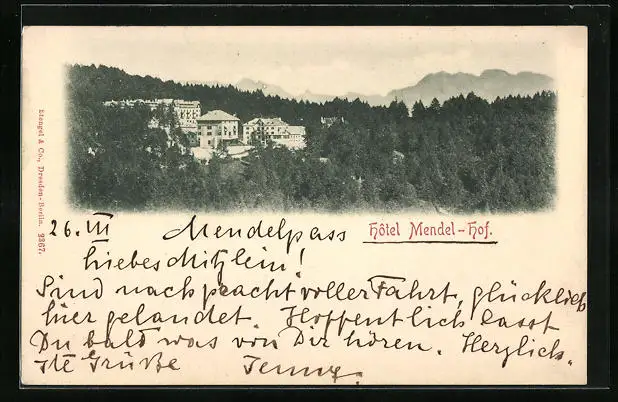 Stengel & Co., Dresden-Berlin. 2367.
26. III Mendelpass Hôtel Mendel-Hof.
Liebes Mitzlein!
Sind nach prachtvoller Fahrt, glücklich
hier gelandet. Hoffentlich lasst
Du bald was von Dir hören. Herzlich-
ste Grüße Jenny.